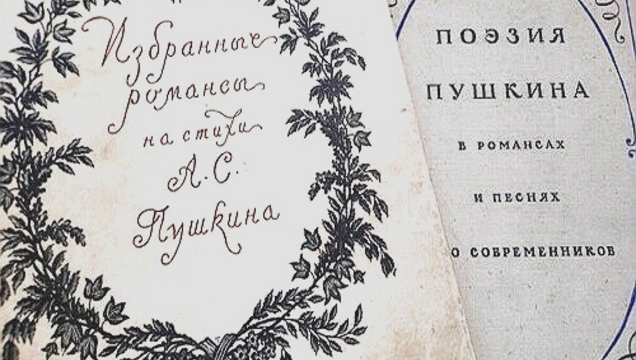 Избранные
романсы
на стихи
А. С.
Пушкина
ПОЭЗИЯ
ПУШКИНА
В РОМАНСАХ
И ПЕСНЯХ
О СОВРЕМЕННИКОВ